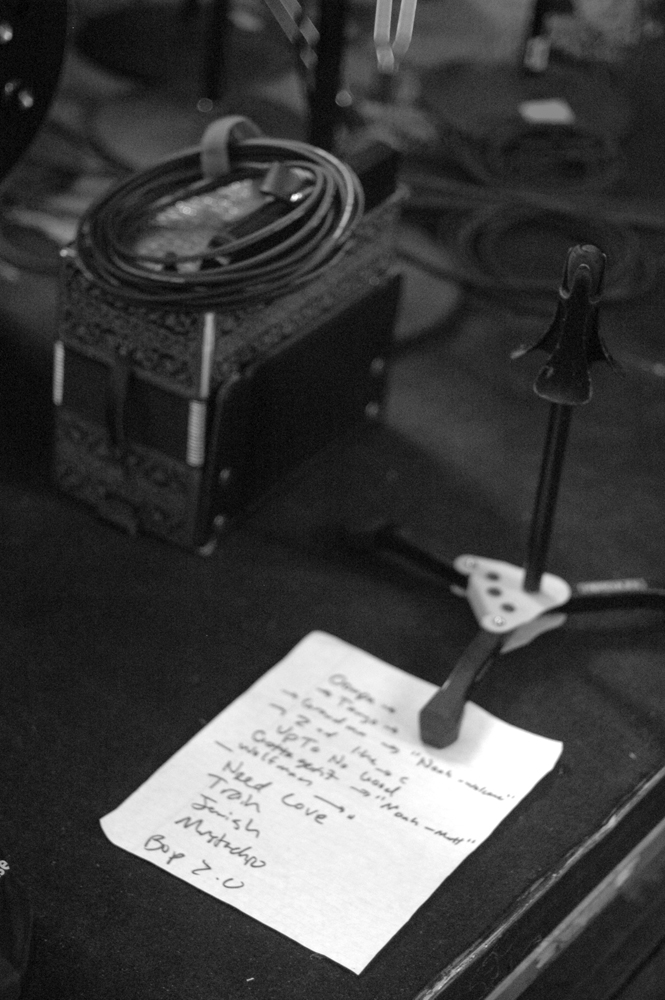 Oompa →
→ Tango →
→ Grandma → "Noah - welcome"
→ 2nd line → C
Up To No Good
Gotta getit → "Noah - Matt"
— Walkman →
Need Love
Train
Jewish
Mustachio
Bop 2.0